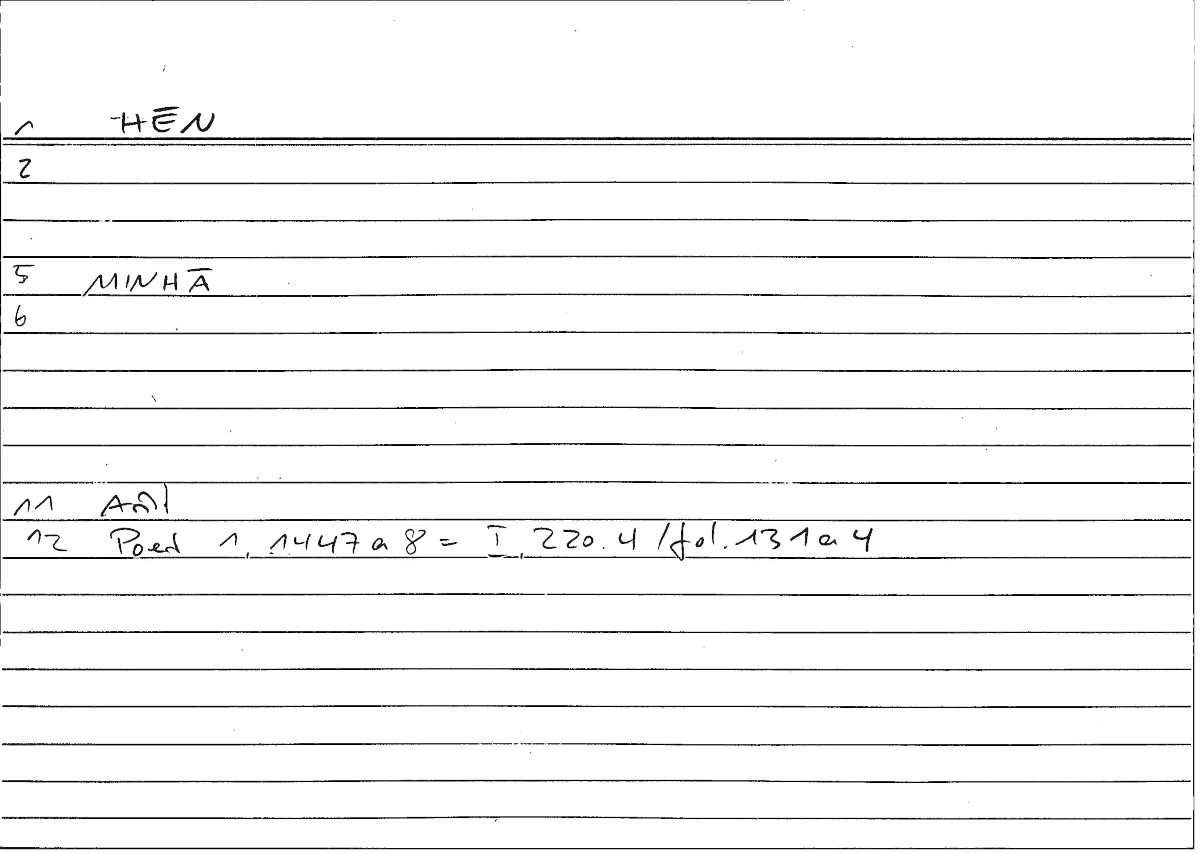 1 HĒN
2
5 MINHĀ
6
11
12 1,1447a8 = I,220.4/fol.131a4